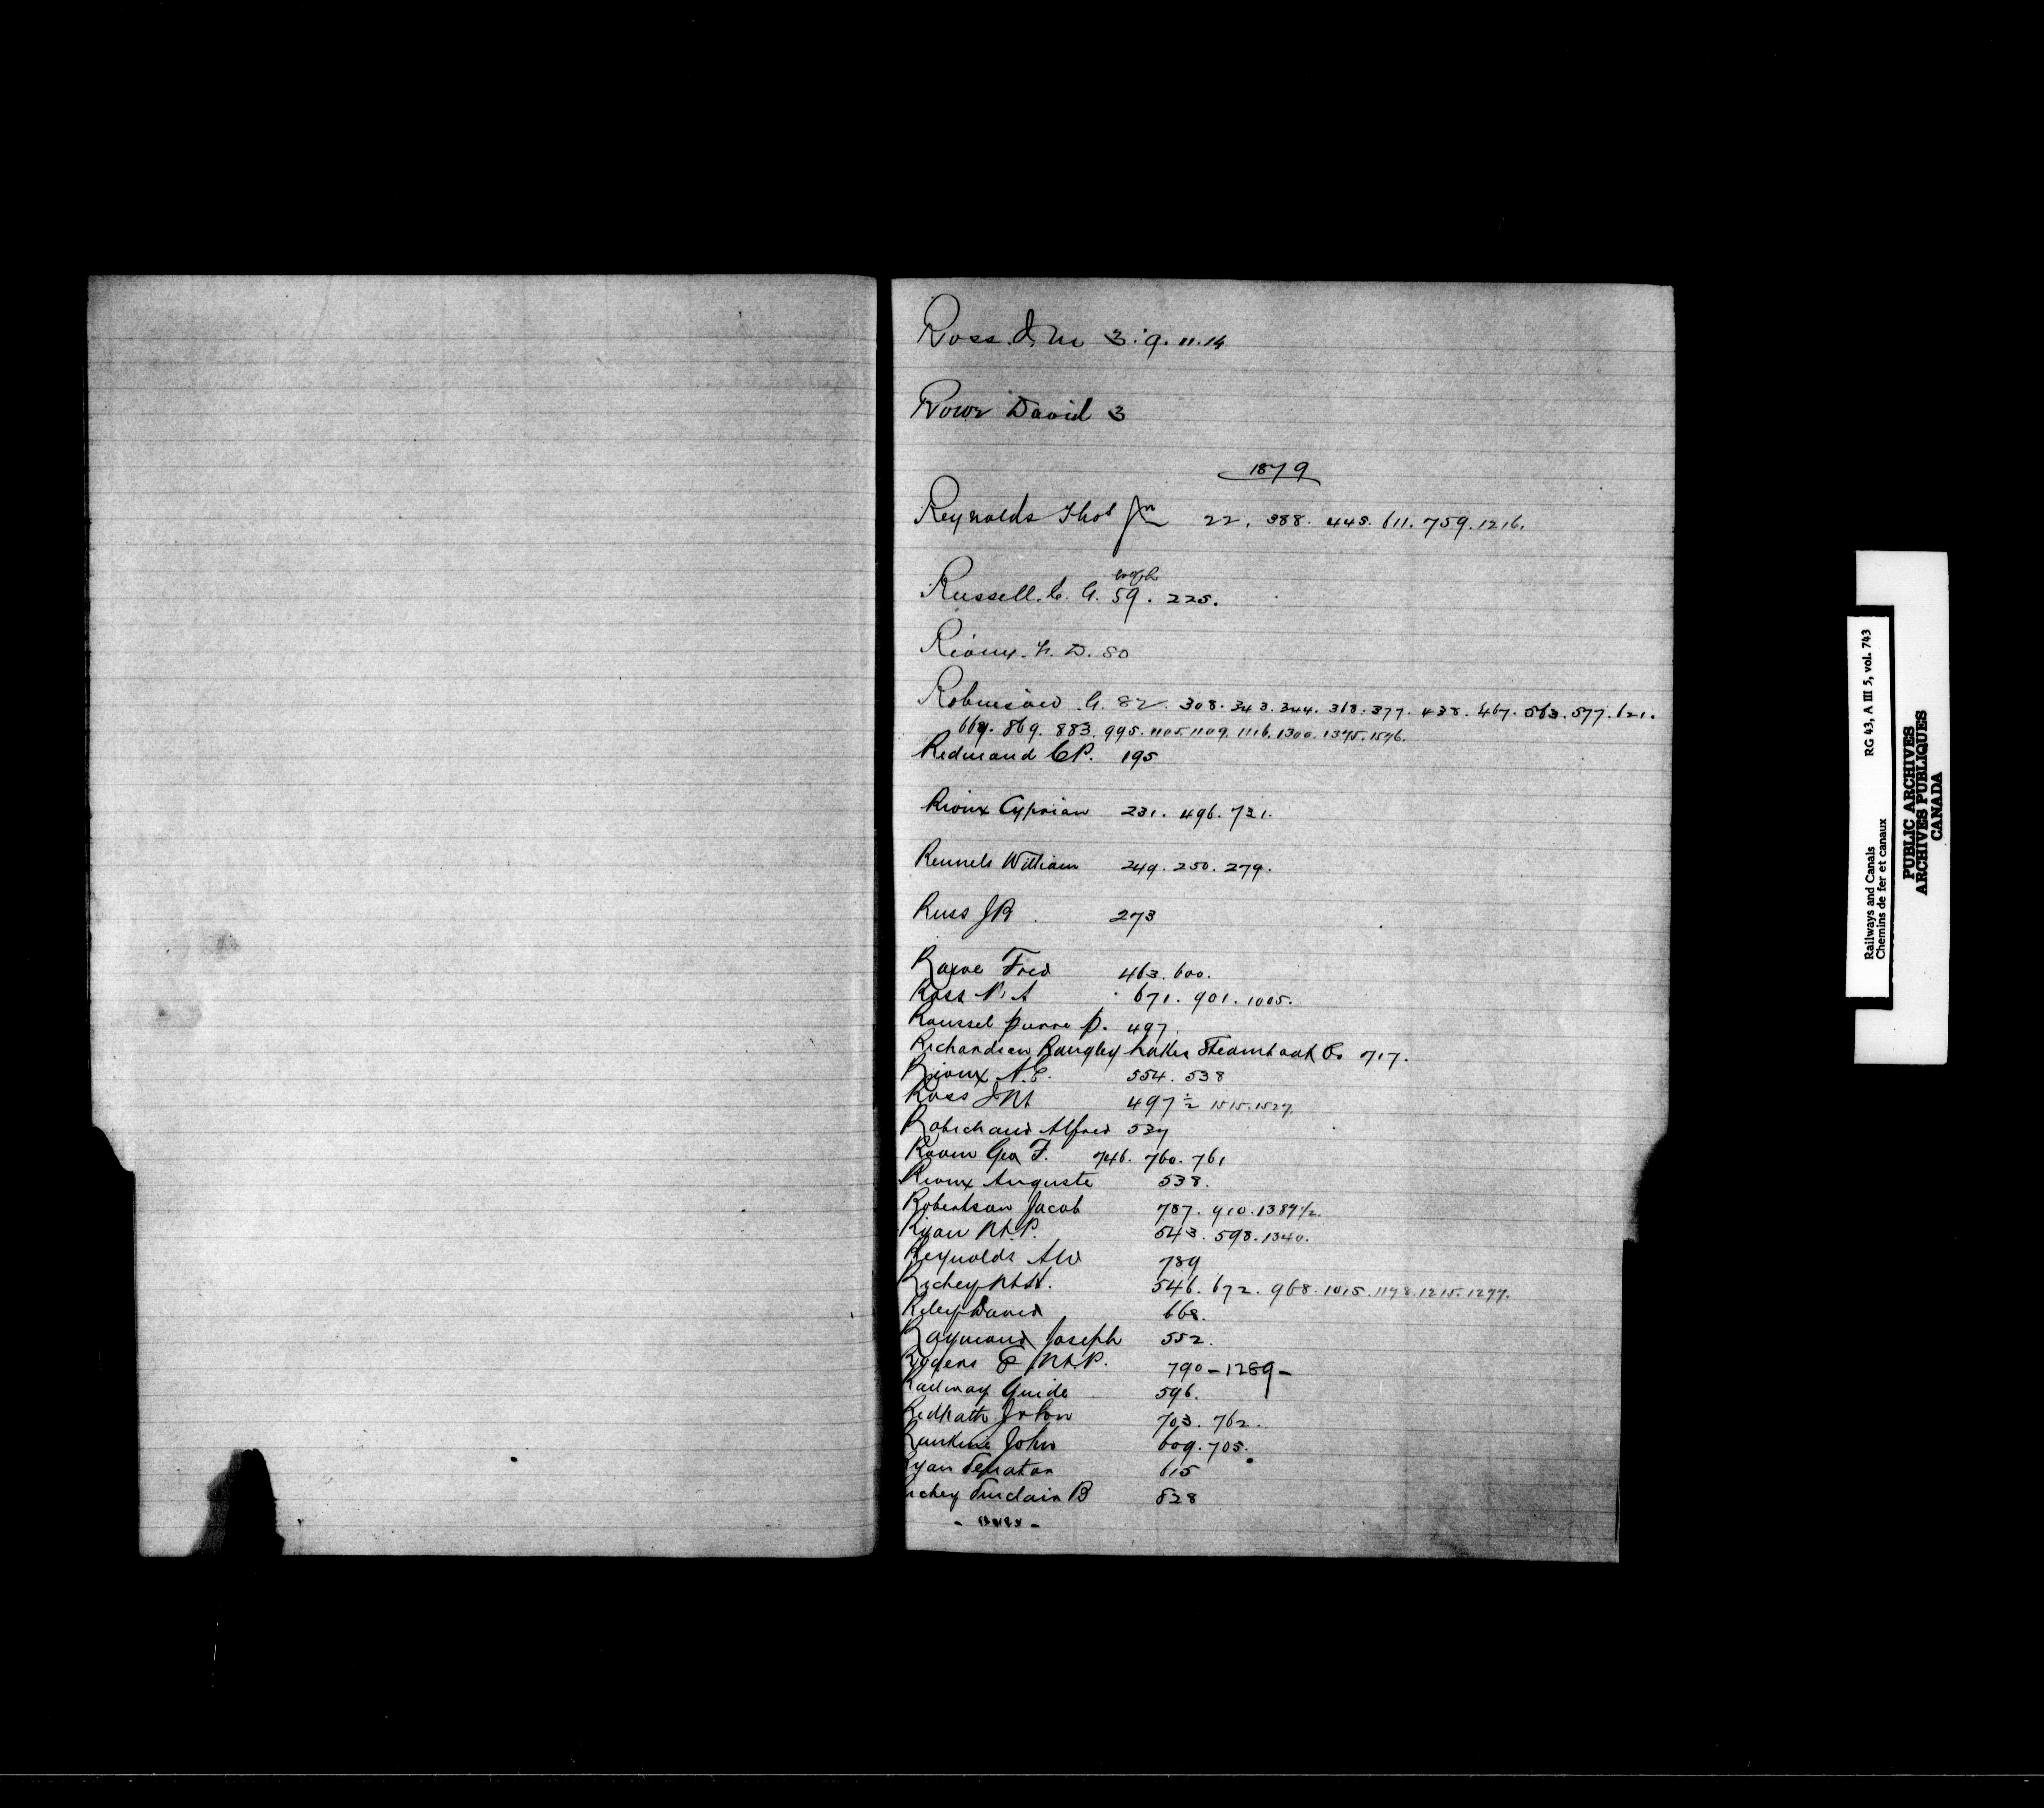 Ross. J. M 3. 9. 11. 14
Rowe David 3
1879
Reynolds Thos Jnr 22. 388. 445. 611. 759. 1216.
Russell. C. G. 59. 225.
Rioux. N. D. 80
Robinson G. 82. 308. 343. 344. 368. 377. 438. 467. 563. 577. 621.
669. 869. 883. 995. 1105. 1109. 1116. 1300. 1375. 1596.
Redmond C P. 195
Rioux Cyprian 231. 496. 721.
Rennels William 249. 250. 279.
Russ J R 273
Fred 463. 600.
Ross P. A 671. 901. 1005.
Roussel Pierre P. 497.
Richardson Rangley Lakes Steamboat Co 717.
Rioux A. E. 554. 538
Ross J M 497 1/2 1515. 1527.
Robichaud Alfred 537
Geo F. 746. 760. 761
Rioux Auguste 538.
Robertson Jacob 787. 910. 1389 1/2.
M. P. 543. 598. 1340.
Reynolds A W 789
Richey M. H. 546. 672. 968. 1015. 1198. 1215. 1277.
Riley David 668.
Raymond Joseph 552.
Rogers E M. P. 790 - 1289 -
Railway Guide 596.
Redpath J & Son 703. 762.
Rankine John 609. 705.
Ryan Senator 615
Richey Sinclair B 828
- Over -
Railways and Canals RG 43, A III 5, vol. 743
Chemins de fer et canaux
PUBLIC ARCHIVES
ARCHIVES PUBLIQUES
CANADA